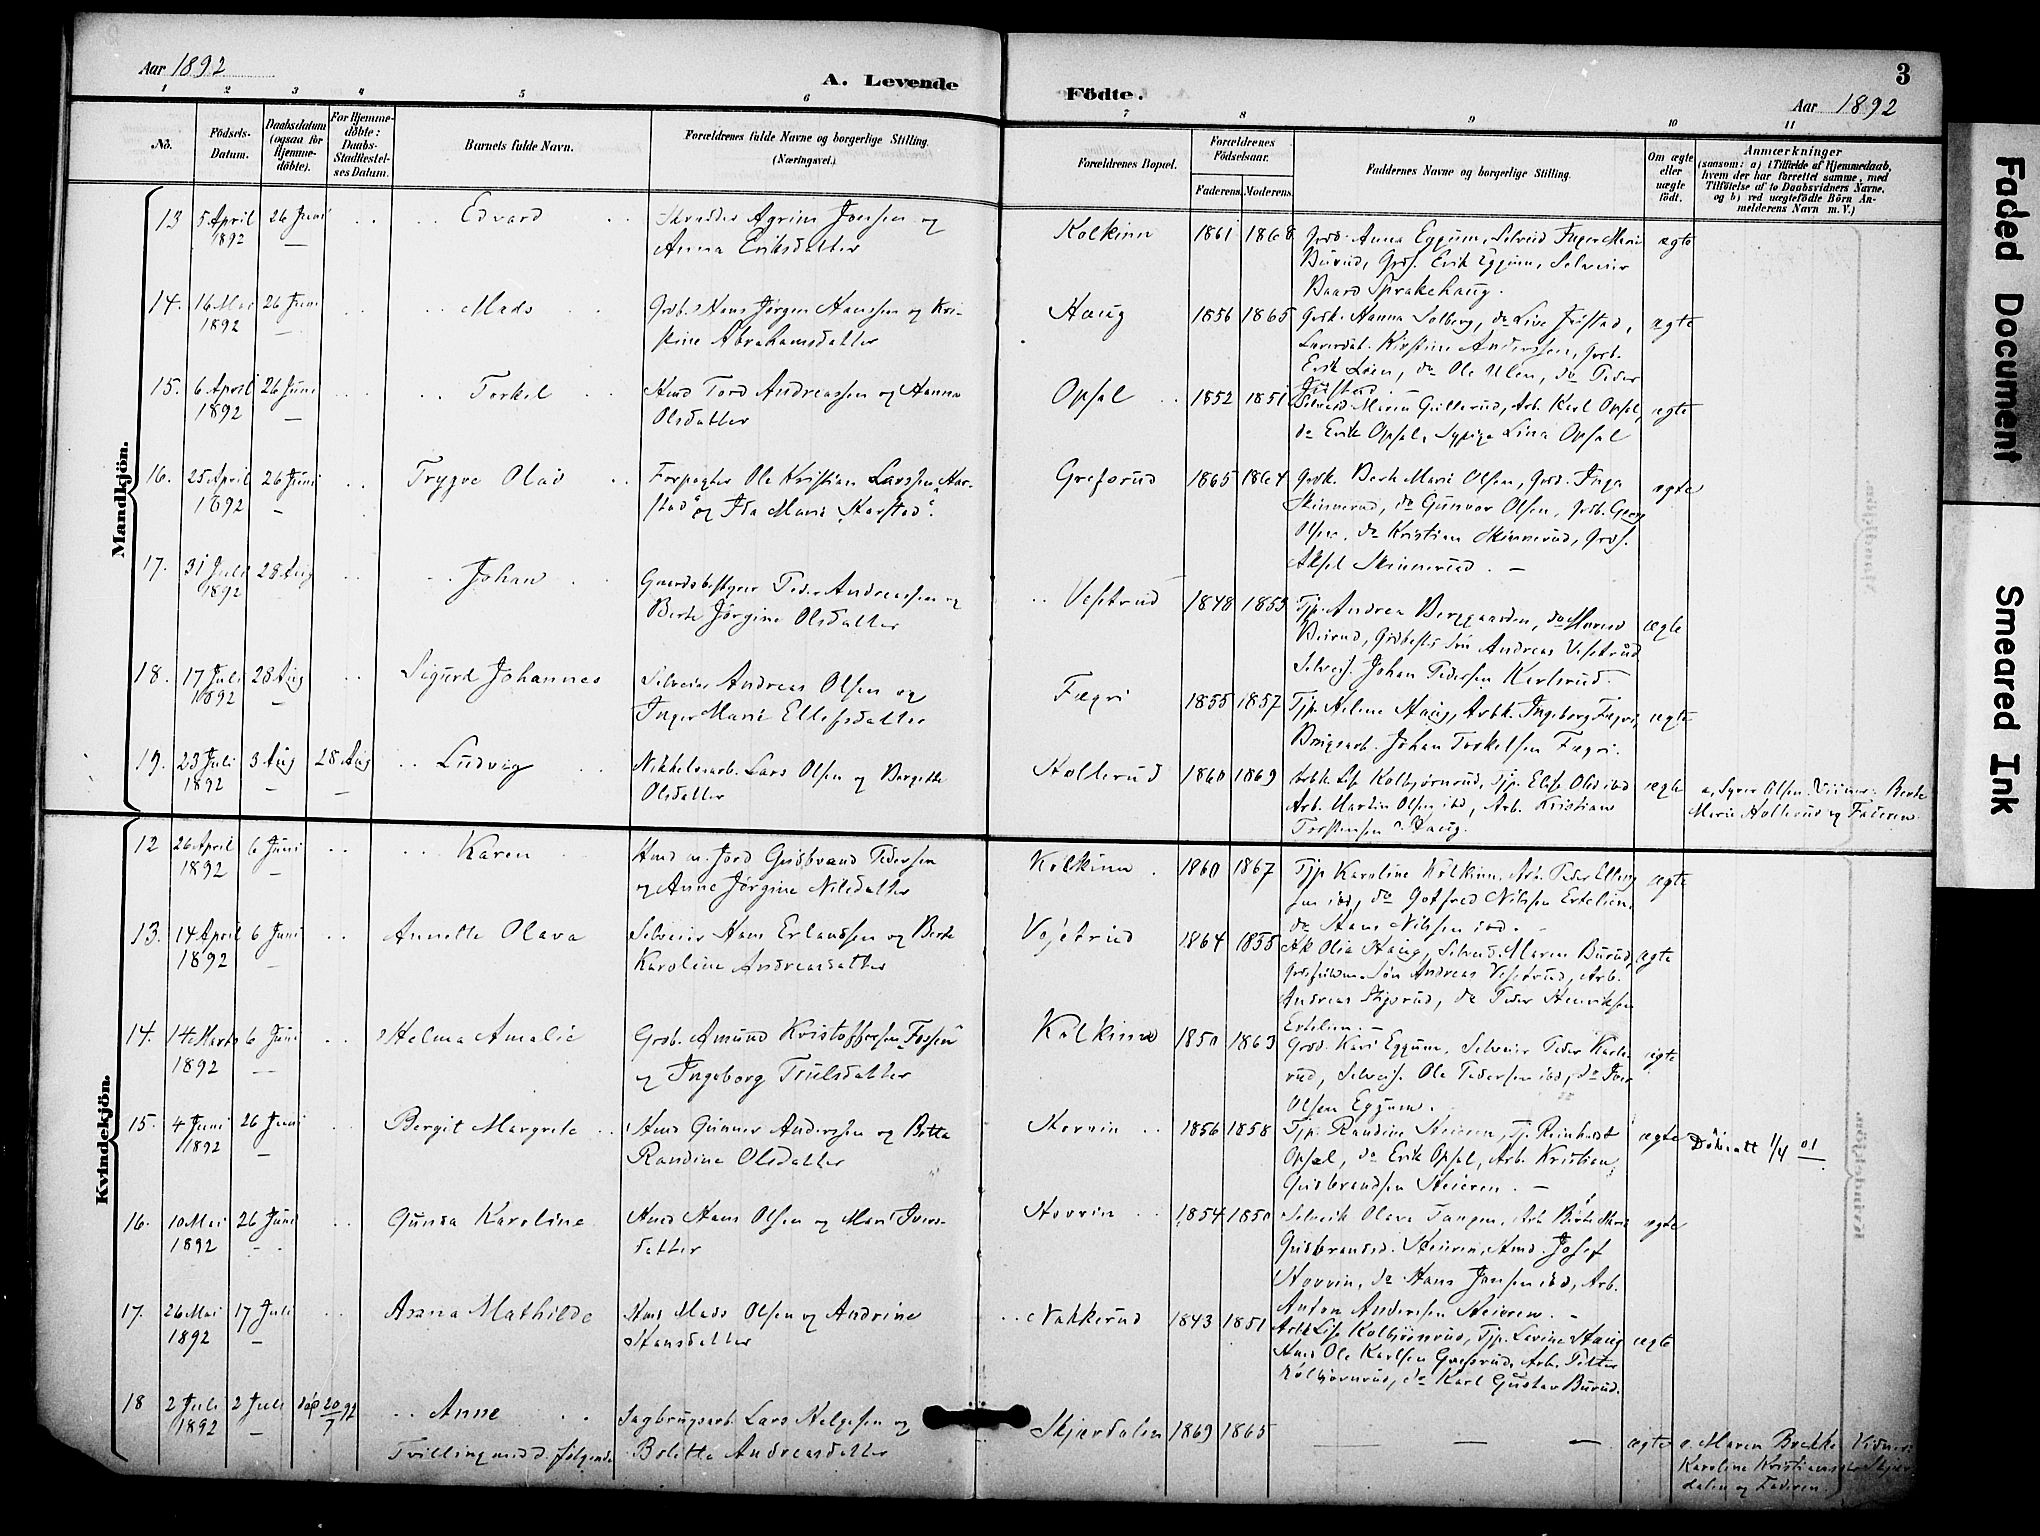 Aar 1892
A. Levende
Födte.
3
Aar 1892
1 2 3 4 5 6 7 8 9 10 11
No.
Födsels-
Datum.
Daabsdatum
(ogsaa for
Hjemme-
döbte).
For Hjemme-
döbte:
Daabs-
Stadfæstel-
ses Datum.
Barnets fulde Navn.
Forældrenes fulde Navne og borgerlige Stilling.
(Næringsvei.)
Forældrenes Bopæl.
Forældrenes
Födselsaar.
Faderens. Moderens.
Faddernes Navne og borgerlige Stilling.
Om ægte
eller
uægte
födt.
Anmærkninger
(saasom: a) i Tilfælde af Hjemmedaab,
hvem der har forrettet samme, med
Tilföielse af to Daabsvidners Navne,
og b) ved uægtefödte Börn An-
melderens Navn m. V.)
Mandkjön.
13 5 April 26 Juni Edvard
1892
Agrim Jonsen og
Anna Eriksdatter
Kolkinn 1861 1868
Anna Eggum, Inger Marie
Burud, Erik Eggum, Selveier
Baard Sprakehaug.
ægte
14. 16 Mai 26 Juni Mads
1892
Hans Jørgen Hansen og Kri-
stine Abrahamsdatter
Haug 1856 1865
Hanna Solberg, do Live
Kirstine Andersen,
Erik Løen, do Ole Ulen, do Peder
ægte
15. 6 April 26 Juni Torkel
1892
Hmd Tord Andreassen og Hanna
Olsdatter
Opsal 1852 1851
Maren Gullerud, Arb. Karl Opsal,
do Erik Opsal, Sypige Lina Opsal
ægte
16. 25 April 26 Juni Trygve Olav
1892
Forpagter Ole Kristian Larssen "Har-
stad" og Ida Marie "Harstad".
Grefsrud 1865 1864
Berte Marie Olsen, Inga
Skinnerud, do Gunvor Olsen, Georg
Olsen, do Kristian Skinnerud,
Aksel Skinnerud. —
ægte
17. 31 Juli 28 Aug Johan
1892
Gaardsbestyrer Peder Andreassen og
Berte Jørgine Olsdatter
Vesetrud 1848 1853
Tjp. Andrea Berggaarden, do
Burud, Søn Andreas Vesetrud
Johan Pedersen Karlsrud.
ægte
18. 17 Juli 28 Aug Sigurd Johannes
1892
Selveier Andreas Olsen og
Inger Marie Ellefsdatter
Fægri 1855 1857
Tjp. Helene Haug, Arbk. Ingeborg Fægri,
Brugsarb. Johan Torkelsen Fægri.
ægte
19. 23 Juli 3 Aug 28 Aug Ludvig
1892
Nikkelsarb. Lars Olsen og Bergitte
Olsdatter
Hollerud 1860 1869
Arbk. Lise Kolbjørnrud, Tjp. Else Olsd ibd
Arb. Martin Olsen ibd, Arb. Kristian
Torstensen Haug.
ægte
a, Syver Olsen. Vidner: Berte
Marie Hollerud og Faderen.
Kvindekjön.
12 26 April 6 Juni Karen
1892
Hmd m. Jord Gudbrand Pedersen
og Anne Jørgine Nilsdatter
Kolkinn 1860 1867
Tjp Karoline Kolkinn, Arb. Peder Elling-
sen ibd, do Gotfred Nilsen Ertelien,
do Hans Nilsen ibd. —
ægte
13. 14 April 6 Juni Annette Olava
1892
Selveier Hans Erlandsen og Berte
Karoline Andreasdatter
Vesetrud 1864 1855
Olia Haug, Maren Burud,
Søn Andreas Vesetrud, Arb.
Andreas Stixrud, do Peder Henriksen
Ertelien. —
ægte
14. 14 Marts 6 Juni Helma Amalie
1892
Grdb. Amund Kristoffersen "Fossen"
og Ingeborg Trulsdatter
Kolkinn 1850 1863
Kari Eggum, Selveier Peder Karls-
rud, Ole Pedersen ibd, do Iver
Olsen Eggum.
ægte
15. 4 Juni 26 Juni Bergit Margrete
1892
Hmd Gunner Andersen og Betta
Randine Olsdatter
Hovrin 1856 1858
Tjp. Randine Heieren, Tj. Reinhardt
Opsal, do Erik Opsal, Arb. Kristian
Gudbrandsen Heieren. —
ægte
Döbsatt 1/4 01
16. 10 Mai 26 Juni Gunda Karoline
1892
Hmd Hans Olsen og Mari Ivers-
datter
Hovrin 1854 1850
Olava Tangen, Arb Berte Marie
Gudbrandsd. Heieren, Hmd. Josef
Hovrin, do Hans Jensen ibd, Arb.
Anton Andersen Heieren. —
ægte
17. 26 Mai 17 Juli Anna Mathilde
1892
Hmd Mads Olsen og Andrine
Hansdatter
Nakkerud 1843 1851
Arbk Lise Kolbjørnrud, Tjp. Lovine Haug
Hmd Ole Karlsen Grefsrud, Arb. Petter
Kolbjørnrud, do Karl Gustav Burud.
ægte
18 2 Juli 2 Juli døp 20/7 92 Anne
1892
Tvilling med d. følgende
Sagbrugsarb. Lars Helgesen og
Bolette Andreasdatter
Skjærdalen 1869 1865
— — —
ægte
a. Maren Brække Vidner:
Karoline Kristiansdatter Skjær-
dalen og Faderen.
Faded Document
Smeared Ink